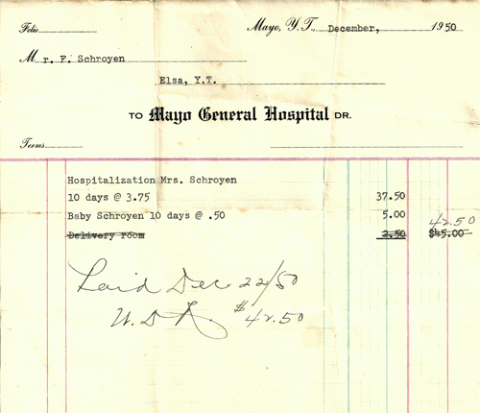 Folio
Mayo, Y.T., December, 1950
Mr. F. Schroyen
Elsa, Y.T.
TO Mayo General Hospital DR.
Terms
Hospitalization Mrs. Schroyen
10 days @ 3.75 37.50
Baby Schroyen 10 days @ .50 5.00 42.50
Delivery room 2.50 $45.00
Paid Dec 22/50
$42.50